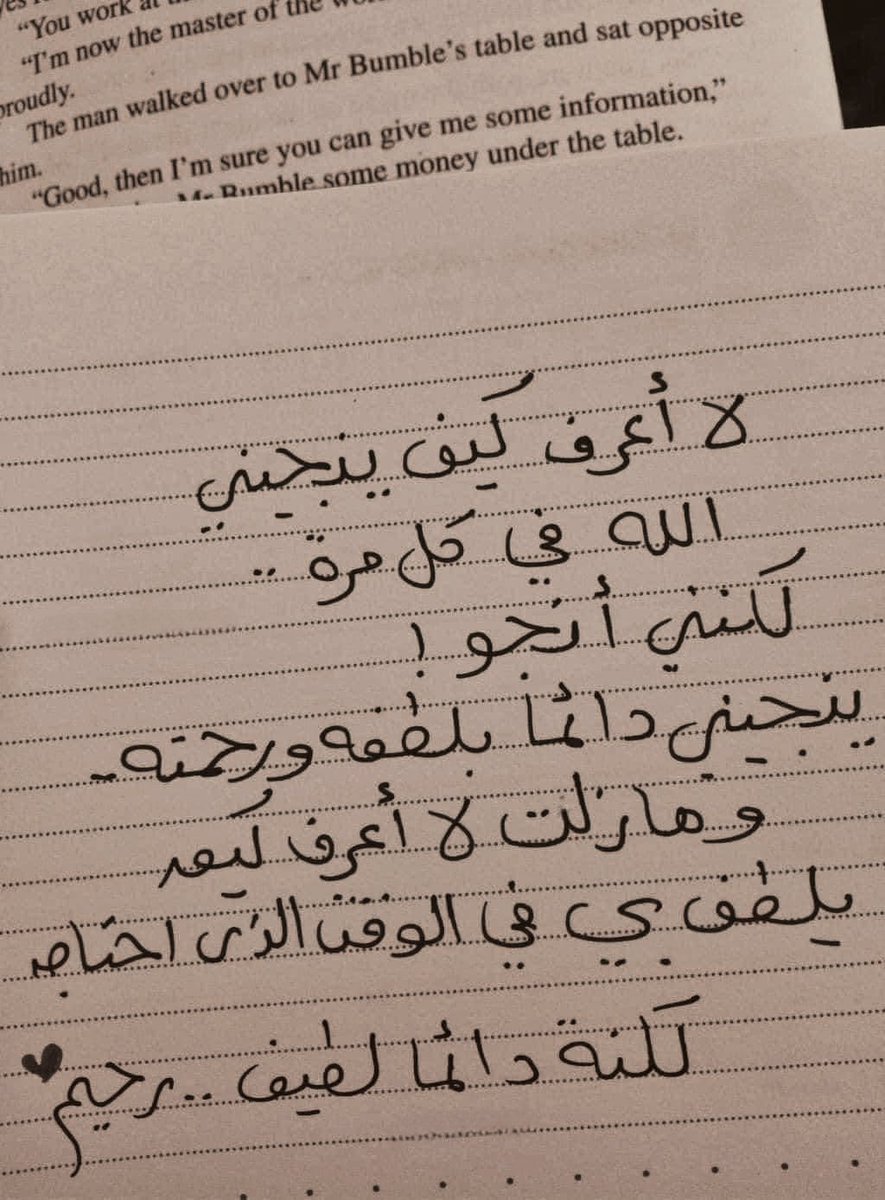 "You work at
"I'm now the master of the
proudly.
The man walked over to Mr Bumble's table and sat opposite
him.
"Good, then I'm sure you can give me some information,"
Mr Bumble some money under the table.
لا أعرف كيف ينجيني
الله في كل مرة ..
لكنني أنجو !
ينجيني دائما بلطفه ورحمته ..
وما زلت لا أعرف كيف
يلطف بي في الوقت الذي احتاجه
لكنة دائما لطيف .. رحيم